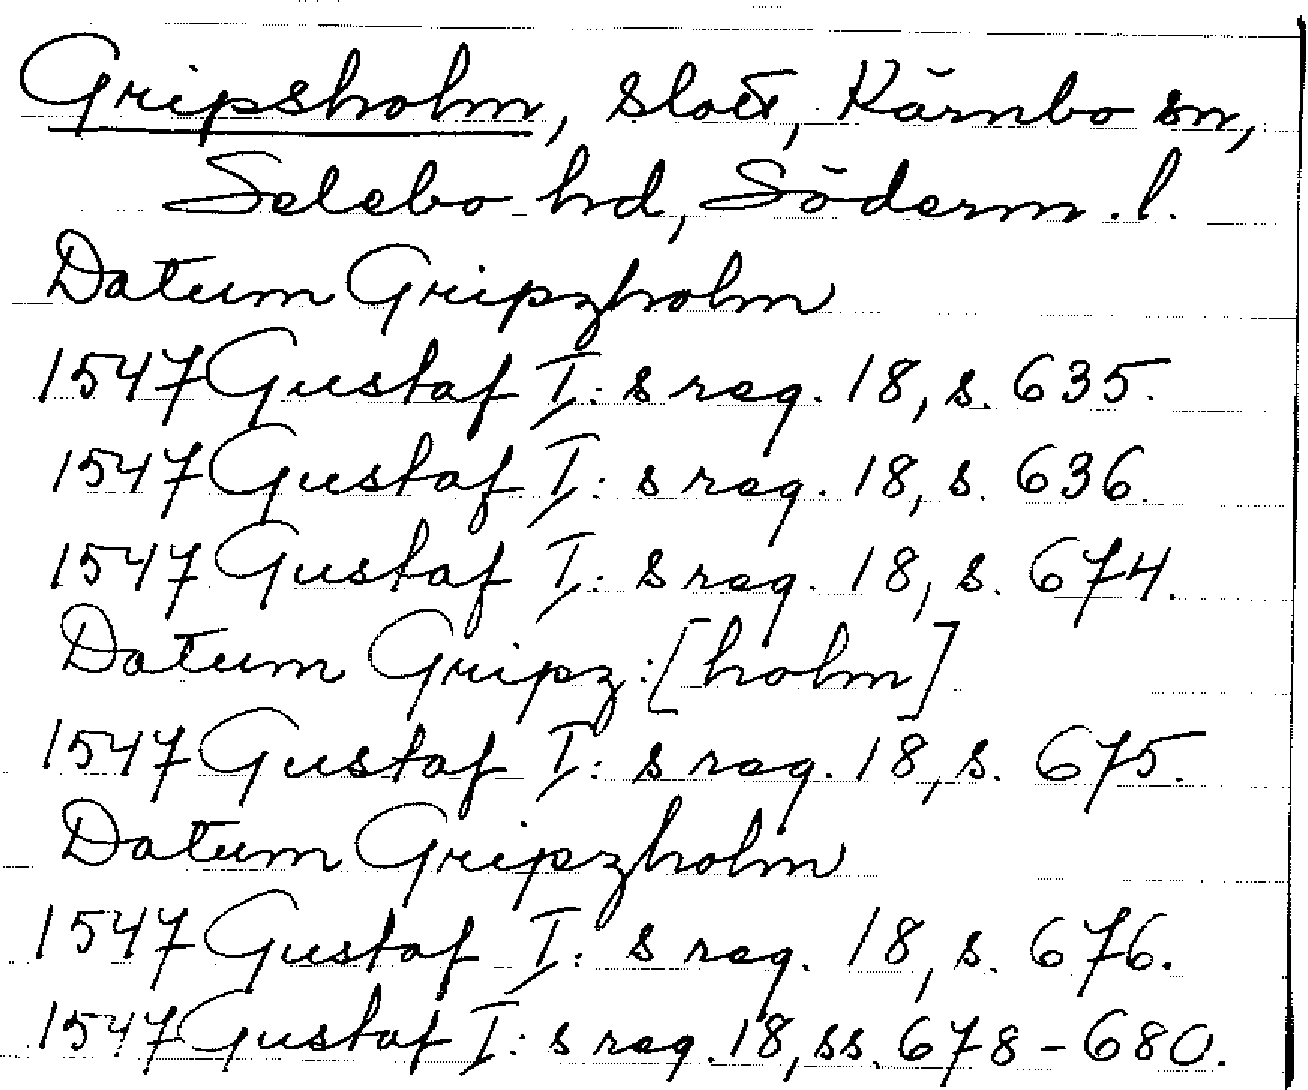 Gripsholm, slott, Kärnbo sn,
Selebo hd, Söderm. l.
Datum Gripzholm
1547 Gustaf I:s reg. 18, s. 635.
1547 Gustaf I:s reg. 18, s. 636.
1547 Gustaf I:s reg. 18, s. 674.
Datum Gripz:[holm]
1547 Gustaf I:s reg. 18, s. 675.
Datum Gripzholm
1547 Gustaf I:s reg. 18, s. 676.
1547 Gustaf I:s reg. 18, ss. 678-680.